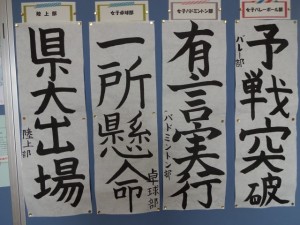 陸上部
県大出場
陸上部
女子卓球部
一所懸命
卓球部
女子バドミントン部
有言実行
バドミントン部
女子バレーボール部
予戦突破
バレー部